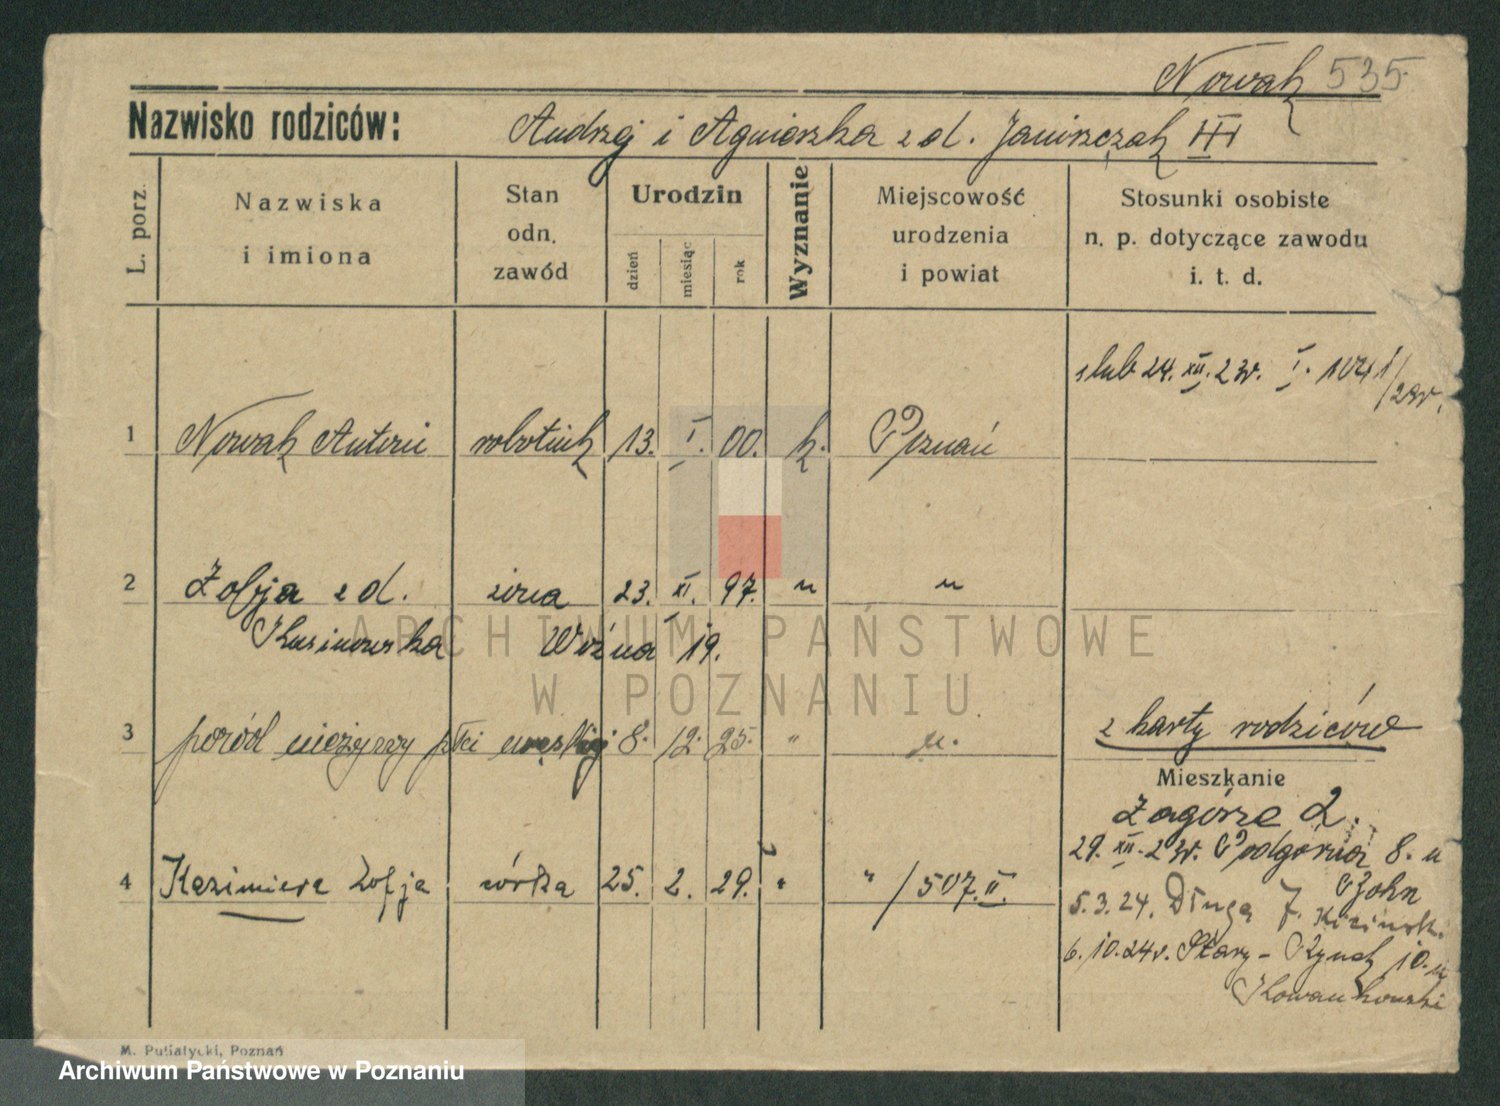 Nowak 535
Nazwisko rodziców: Andrzej i Agnieszka z d. Janiszczak III
L. porz.
Nazwiska
i imiona
Stan
odn.
zawód
Urodzin
dzień
miesiąc
rok
Wyznanie
Miejscowość
urodzenia
i powiat
Stosunki osobiste
n. p. dotyczące zawodu
i. t. d.
ślub 24. XII. 23r. I. 1041/23r.
1 Nowak Antoni robotnik 13. I. 00. k. Poznań
2 Zofja z d. żona 23. XI. 97. " "
Woźna 19.
ARCHIWUM PAŃSTWOWE
W POZNANIU
3 poród nieżywy płci męskiej 8. 12. 25. " "
z karty rodziców
Mieszkanie
Zagórze 2.
29. XII. 23r. Podgórna 8. u
4 Kazimiera Zofja córka 25. 2. 29. " " / 507. II.
5.3.24. Długa 7.
6.10.24r. Stary-Rynek 10. u
M. Putiatycki, Poznań
Archiwum Państwowe w Poznaniu